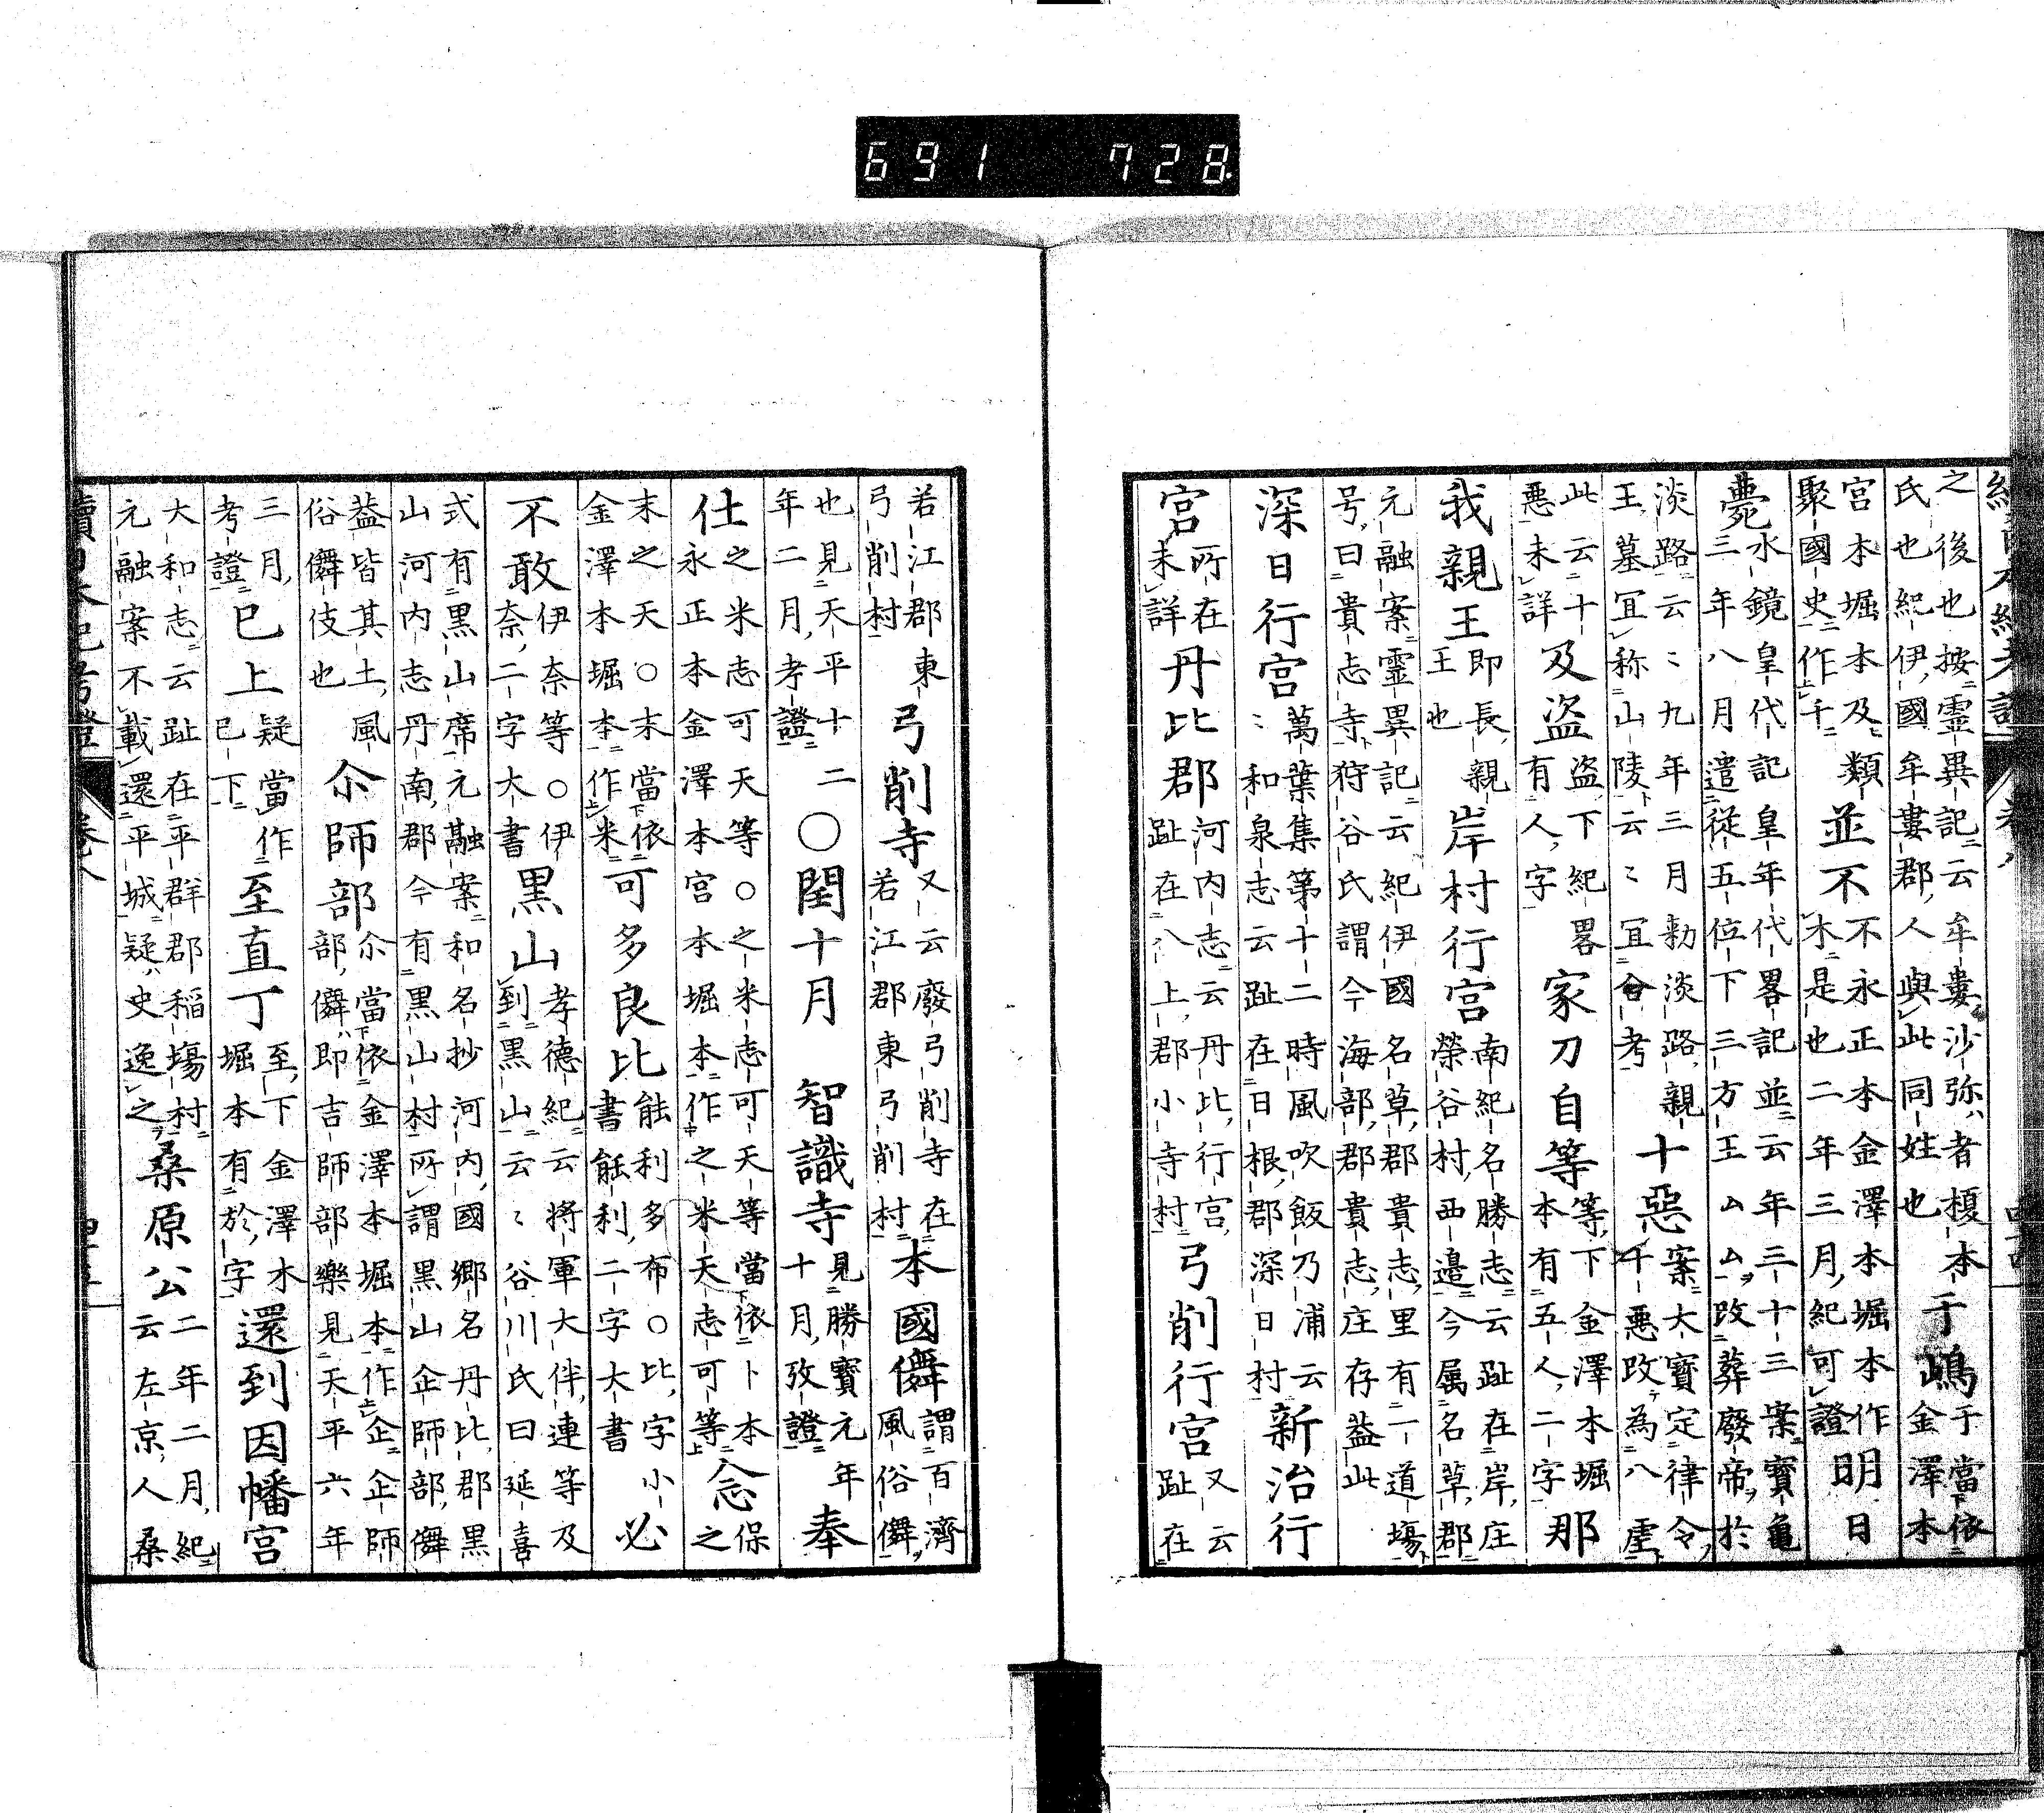 之後也按霊異記云牟婁沙弥者榎本
氏也紀伊國牟婁郡人與此同姓也
于嶋
于當依
金澤本
宮本堀本及類
聚國史作千
並不
不永正本金澤本堀本作
木是也二年三月紀可證
明日
薨
水鏡皇代記皇年代畧記並云年三十三案寶龜
三年八月遣從五位下三方王ムム改葬廢帝於
淡路云〻九年三月勅淡路親
王墓冝称山陵云〻冝合考
十惡
案大寶定律令
千悪改為八虐
此云十
悪未詳
及盗
盗下紀畧
有人字
家刀自等
等下金澤本堀
本有五人二字
那
我親王
即長親
王也
岸村行宮
南紀名勝志云趾在岸庄
榮谷村西邉今属名草郡
元融案霊異記云紀伊國名草郡貴志里有一道塲
号曰貴志寺狩谷氏謂今海部郡貴志庄存葢此
深日行宮
萬葉集第十二時風吹飯乃浦云
〻和泉志云趾在日根郡深日村
新治行
宮
所在
未詳
丹比郡
河内志云丹比行宮
趾在八上郡小寺村
弓削行宮
又云
趾在
若江郡東
弓削村
弓削寺
又云廢弓削寺在
若江郡東弓削村
本國儛
謂百濟
風俗儛
也見天平十二
年二月考證
〇閏十月
智識寺
見勝寶元年
十月攷證
奉
仕
之米志可天等〇之米志可天等當依卜本保
永正本金澤本宮本堀本作之米天志可等
念之
末之天〇末當依
金澤本堀本作米
可多良比
能利多布〇比字小
書能利二字大書
必
不敢
伊奈等〇伊
奈二字大書
黒山
孝德紀云將軍大伴連等及
到黒山云〻谷川氏曰延喜
式有黒山席元融案和名抄河内國郷名丹比郡黒
山河内志丹南郡今有黒山村所謂黒山企師部儛
葢皆其土風
俗儛伎也
尒師部
尒當依金澤本堀本作企企師
部儛即吉師部樂見天平六年
三月
考證
巳上
疑當作
巳下
至直丁
至下金澤木
堀本有於字
還到因幡宮
大和志云趾在平群郡稲塲村
元融案不載還平城疑史逸之
桑原公
二年二月紀
云左京人桑